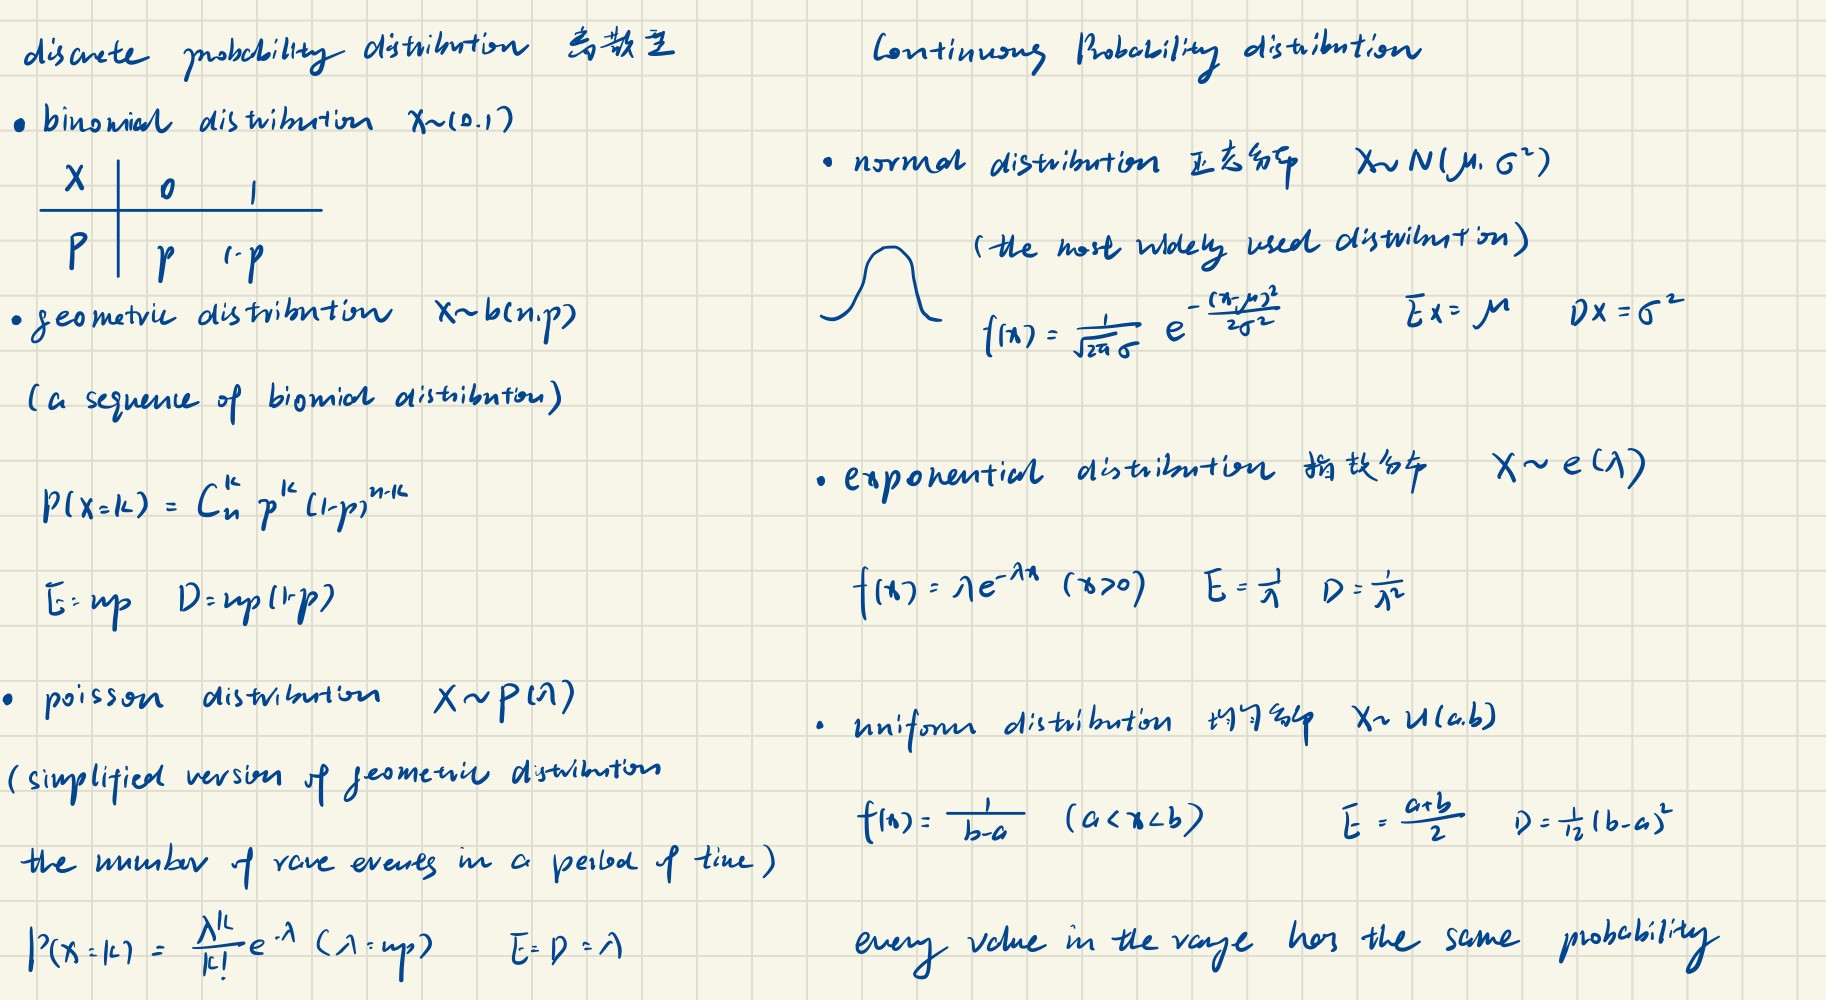 discrete probability distribution 离散型
• binomial distribution X~(0.1)
X 0 1
P p 1-p
• geometric distribution X~b(n.p)
(a sequence of biomial distribution)
P(X=k) = C_n^k p^k (1-p)^{n-k}
E=np D=np(1-p)
• poisson distribution X~P(λ)
(simplified version of geometric distribution
the number of rare events in a period of time)
P(X=k) = λ^k/k! e^{-λ} (λ=np) E=D=λ
Continuous Probability distribution
• normal distribution 正态分布 X~N(μ, σ²)
(the most widely used distribution)
f(x) = 1/(√2π σ) e^{-(x-μ)²/2σ²} Ex=μ Dx=σ²
• exponential distribution 指数分布 X~e(λ)
f(x) = λe^{-λx} (x>0) E=1/λ D=1/λ²
• uniform distribution 均匀分布 X~U(a.b)
f(x) = 1/(b-a) (a<x<b) E=(a+b)/2 D=1/12(b-a)²
every value in the range has the same probability